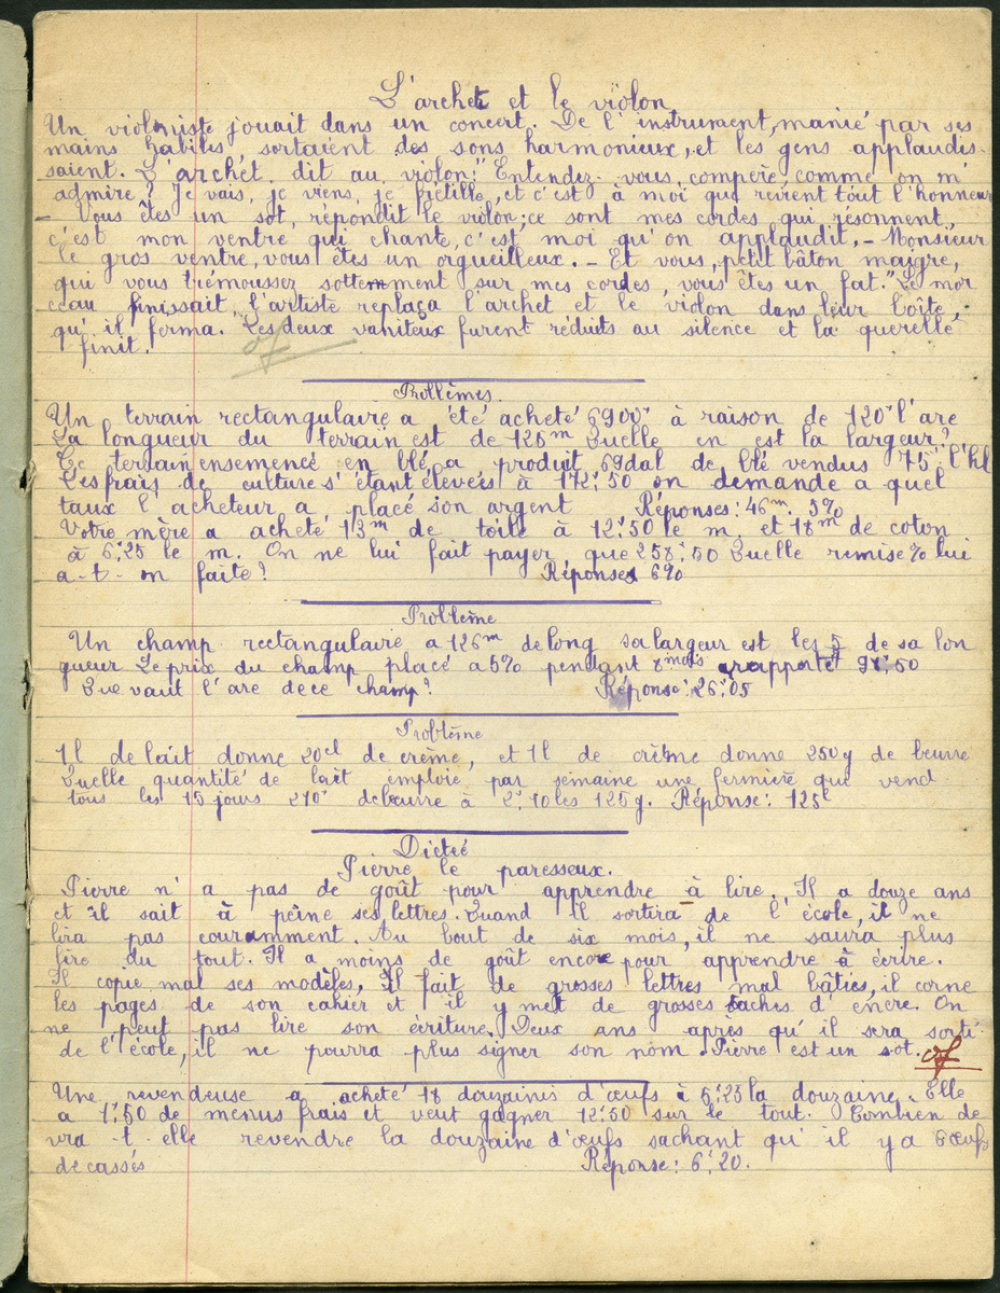 L'archet et le violon
Un violoniste jouait dans un concert. De l'instrument, manié par ses
mains habiles, sortaient des sons harmonieux, et les gens applaudis-
saient. L'archet dit au violon: "Entendez-vous, compère comme on m'
admire? Je vais, je viens, je frétille, et c'est à moi que revient tout l'honneur
- Vous êtes un sot, répondit le violon; ce sont mes cordes qui résonnent,
c'est mon ventre qui chante, c'est moi qu'on applaudit. - Monsieur
le gros ventre, vous êtes un orgueilleux. - Et vous, petit bâton maigre,
qui vous trémoussez sottement sur mes cordes, vous êtes un fat." Le mor
ceau finissait, l'artiste replaça l'archet et le violon dans leur boîte,
qu'il ferma. Les deux vaniteux furent réduits au silence et la querelle
finit.
Problèmes.
Un terrain rectangulaire a été acheté 6900f à raison de 120f l'are
La longueur du terrain est de 125m Quelle en est la largeur?
Ce terrain ensemencé en blé a produit 69dal de blé vendus 75f l'hl
Les frais de culture s'étant élevées à 172f,50 on demande a quel
taux l'acheteur a placé son argent Réponses: 46m. 5%
Votre mère a acheté 13m de toile à 12f,50 le m, et 18m de coton
à 6f,25 le m. On ne lui fait payer que 258f,50 Quelle remise % lui
a-t-on faite? Réponses 6%
Problème
Un champ rectangulaire a 126m de long sa largeur est les de sa lon
gueur Le prix du champ placé a 5% pendant 8 mois rapporte 98f,50
Que vaut l'are de ce champ? Réponse: 26f,05
Problème
1l de lait donne 20cl de crème, et 1l de crème donne 250g de beurre
Quelle quantité de lait emploie par semaine une fermière qui vend
tous les 15 jours 210f de beurre à 2f,10 les 125g. Réponse: 125l
Dictée
Pierre le paresseux.
Pierre n'a pas de goût pour apprendre à lire. Il a douze ans
et il sait à peine ses lettres. Quand il sortira de l'école, il ne
lira pas couramment. Au bout de six mois, il ne saura plus
lire du tout. Il a moins de goût encore pour apprendre à écrire.
Il copie mal ses modèles, Il fait de grosses lettres mal bâties, il corne
les pages de son cahier et il y met de grosses taches d'encre. On
ne peut pas lire son écriture. Deux ans après qu'il sera sorti
de l'école, il ne pourra plus signer son nom. Pierre est un sot.
Une revendeuse a acheté 18 douzaines d'œufs à 5f,25 la douzaine. Elle
a 1f,50 de menus frais et veut gagner 12f,50 sur le tout. Combien de
vra-t-elle revendre la douzaine d'œufs sachant qu'il y a 6 œufs
de cassés Réponse: 6f,20.